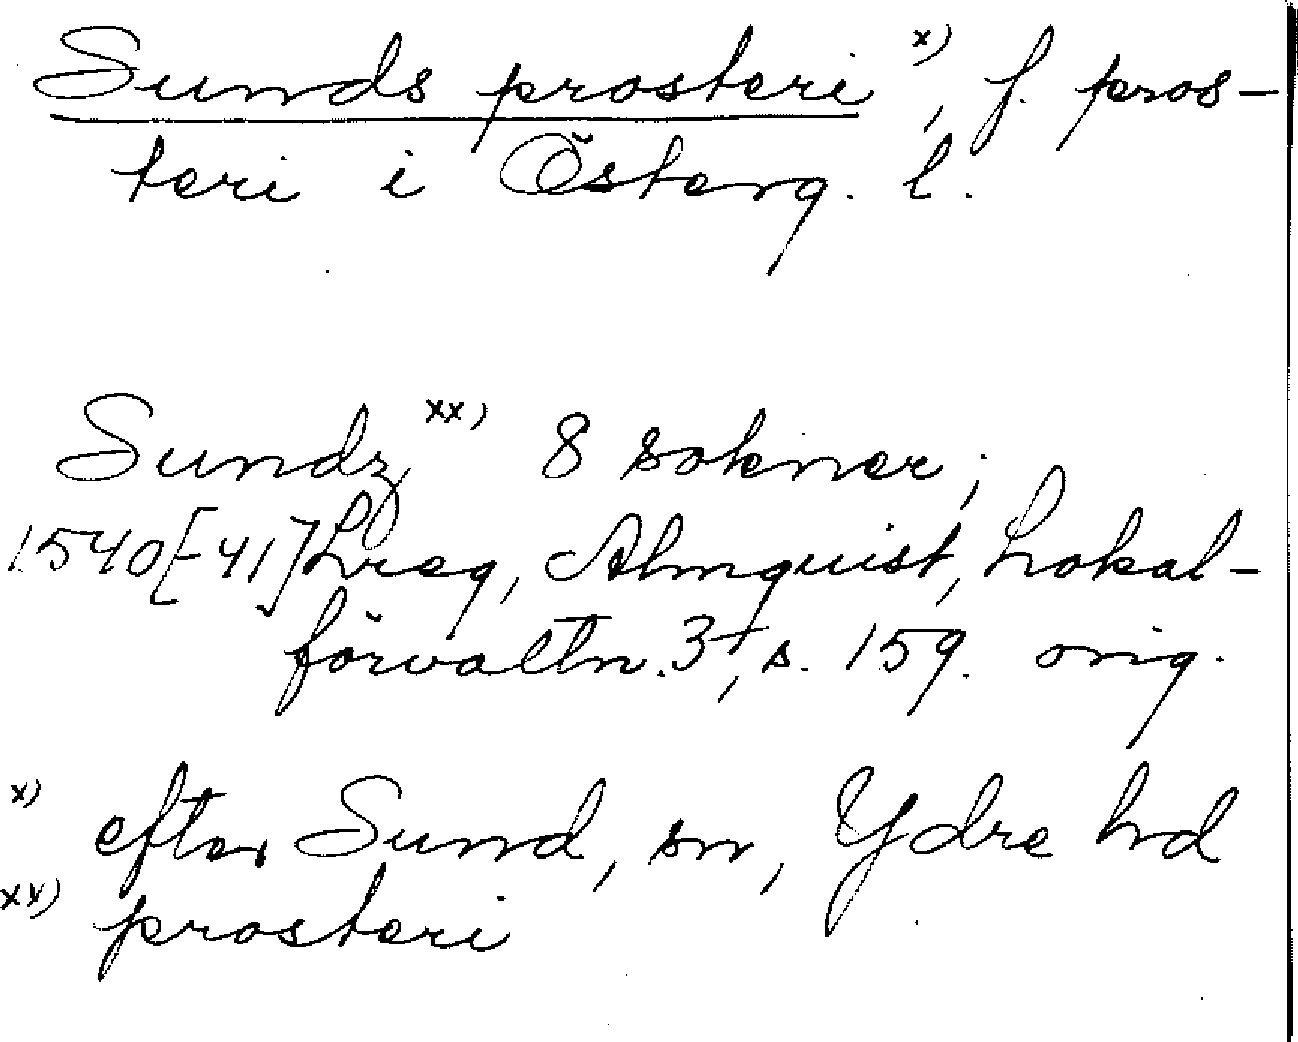 Sunds prosteri x), f. pros-
teri i Österg. l.
Sundz xx) 8 sokner;
1540[-41] Lreg, Almquist, Lokal-
förvaltn. 3, s. 159. orig.
x) efter Sund, sn, Ydre hd
xx) prosteri